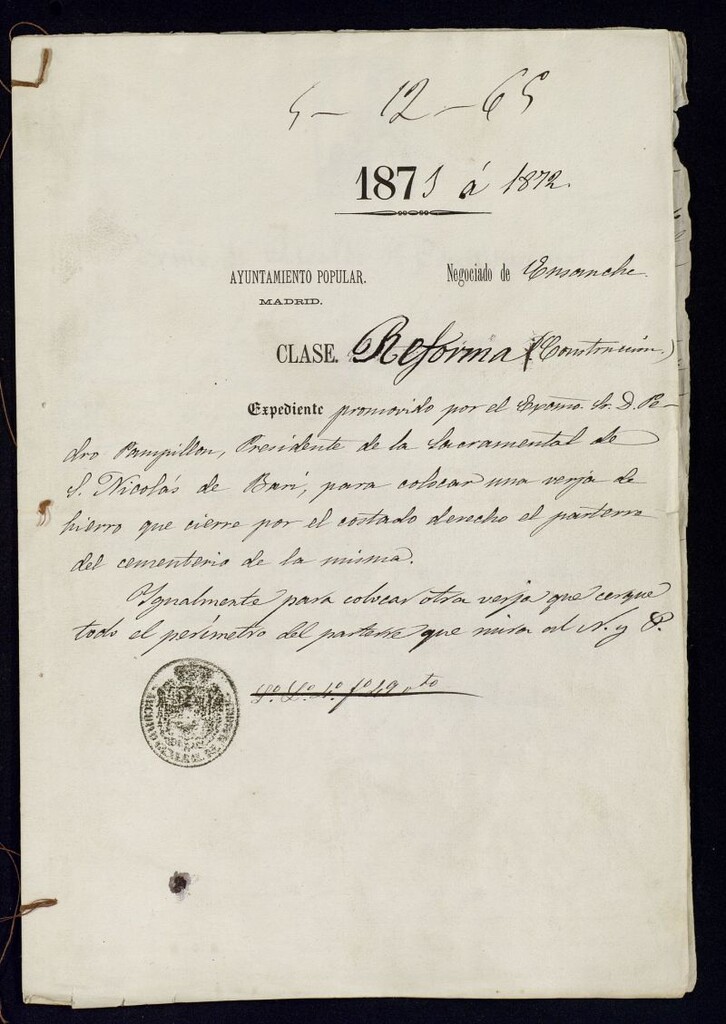 5 - 12 - 65
1871 á 1872.
AYUNTAMIENTO POPULAR.
MADRID.
Negociado de Ensanche.
CLASE. Reforma (Construcción.)
Expediente promovido por el Excmo. Sr. D. Pe-
dro Pampillon, Presidente de la Sacramental de
S. Nicolás de Bari, para colocar una verja de
hierro que cierre por el costado derecho el parterre
del cementerio de la misma.
Igualmente para colocar otra verja que cerque
todo el perímetro del parterre que mira al N. y P.
ARCHIVO GENERAL DE